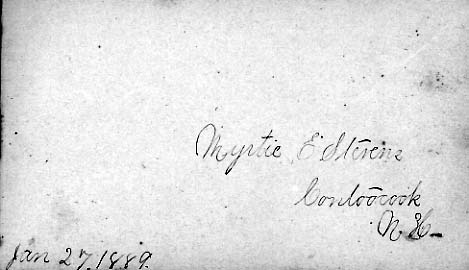 Myrtie E Stevens
Contoocook
N H
Jan 27, 1889.